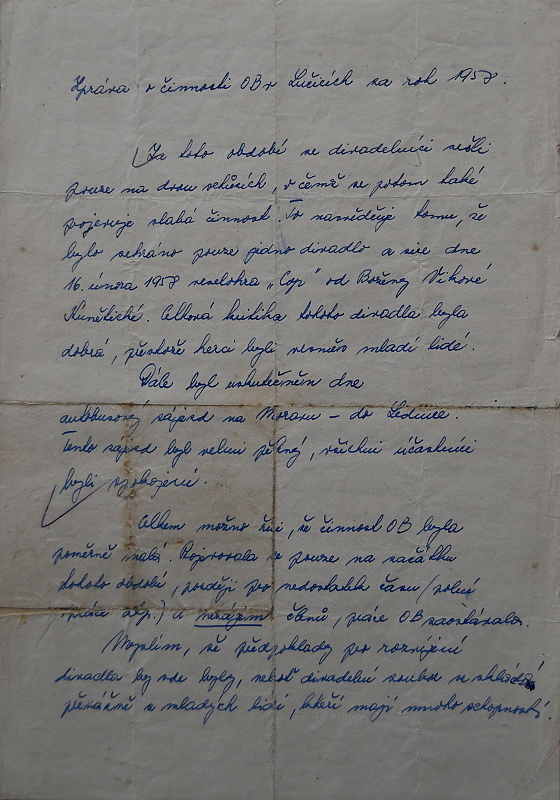 Zpráva o činnosti OB v Lučicích za rok 1958.
Za toto období se divadelníci sešli
pouze na dvou schůzích, v čemž se potom také
projevuje slabá činnost. To nasvědčuje tomu, že
bylo sehráno pouze jedno divadlo a sice dne
16. února 1958 veselohra „Cop" od Boženy Vikové
Kunětické. Celková kritika tohoto divadla byla
dobrá, přestože herci byli vesměs mladí lidé.
Dále byl uskutečněn dne
autobusový zájezd na Moravu – do Lednice.
Tento zájezd byl velmi pěkný, všichni účastníci
byli spokojeni.
Celkem možno říci, že činnost OB byla
poměrně malá. Projevovala se pouze na začátku
tohoto období, později pro nedostatek časů (polní
práce atp.) a nezájem členů, práce OB zaostávala.
Myslím, že předpoklady pro rozvíjení
divadla by zde byly, neboť divadelní soubor se skládá
převážně z mladých lidí, kteří mají mnoho schopností.